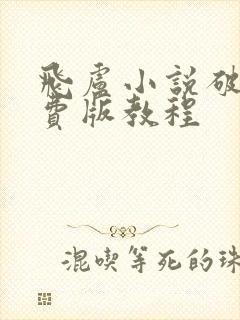 飛盧小說破
費版教程
混喫等死的珠